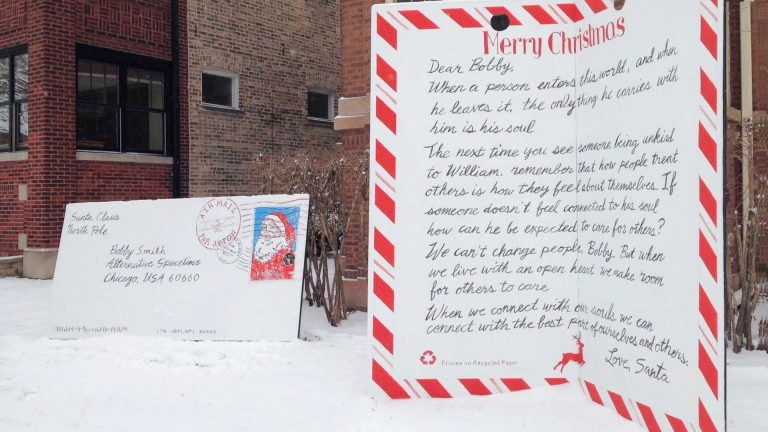 Santa Claus
North Pole
AIR MAIL
PAR AVION
Bobby Smith
Alternative Spacetime
Chicago, USA 60660
Merry Christmas
Dear Bobby,
When a person enters this world, and when
he leaves it, the only thing he carries with
him is his soul.
The next time you see someone being unkind
to William, remember that how people treat
others is how they feel about themselves. If
someone doesn't feel connected to his soul,
how can he be expected to care for others?
We can't change people, Bobby. But when
we live with an open heart, we make room
for others to care.
When we connect with our souls we can
connect with the best parts of ourselves and others.
Love, Santa
Printed on Recycled Paper